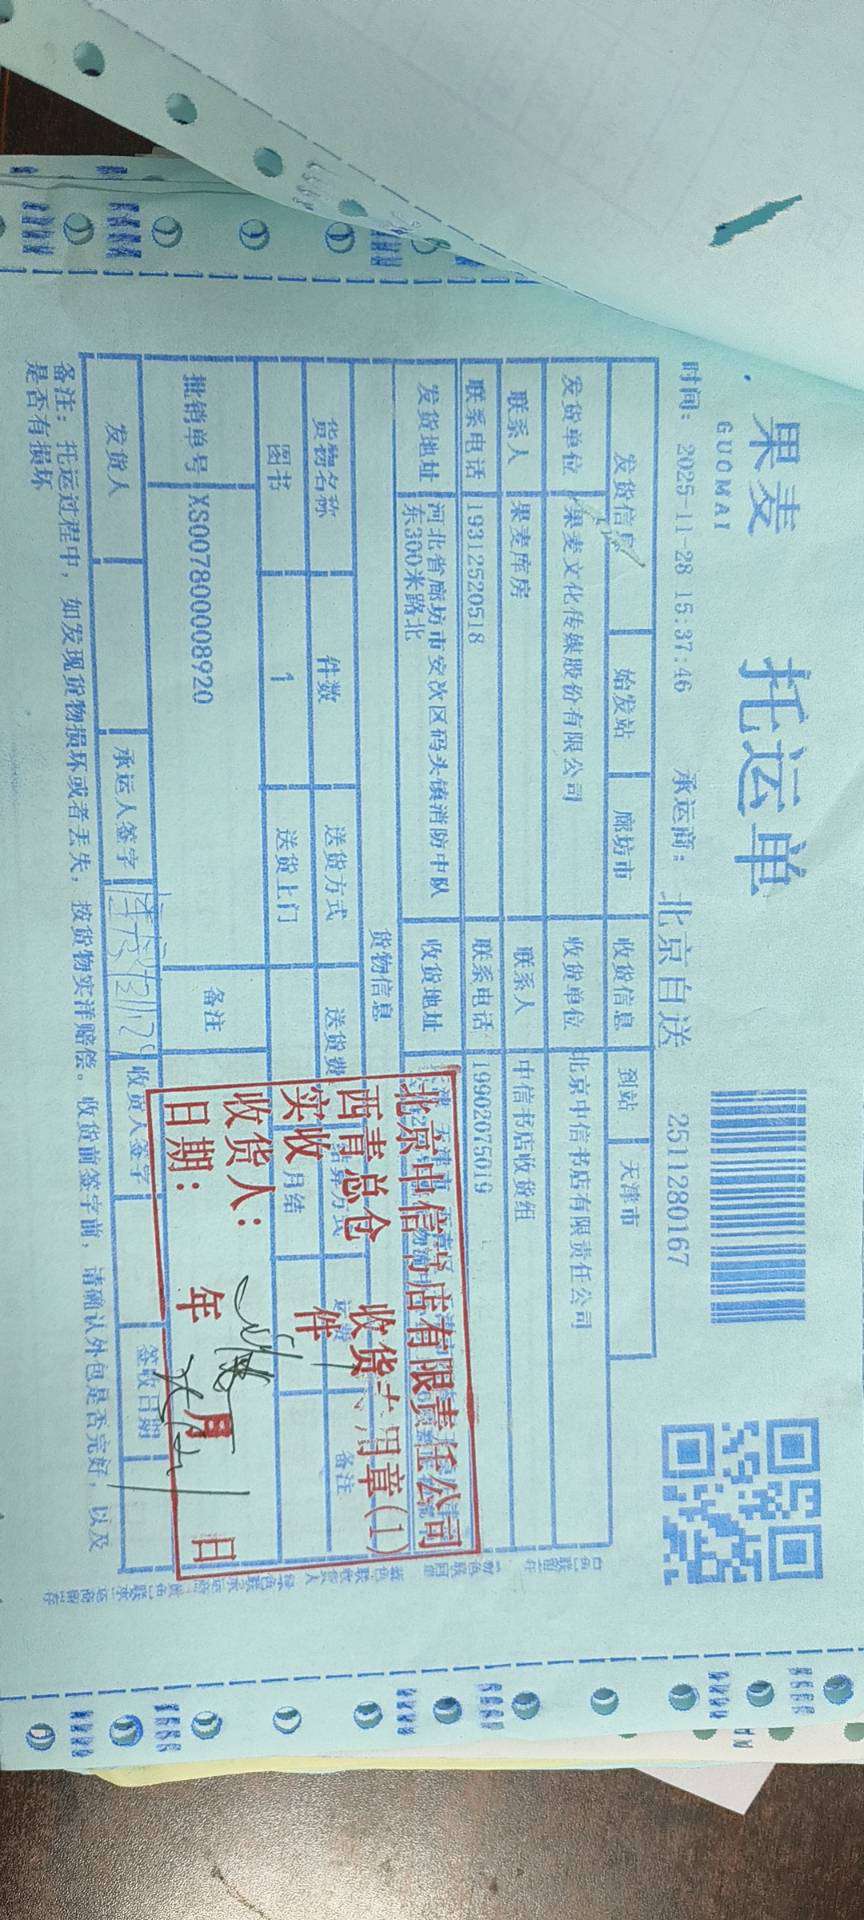 果麦 托运单
GUOMAI
时间: 2025-11-28 15:37:46 承运商: 北京自送 2511280167
发货信息 始发站 廊坊市 收货信息 到站 天津市
发货单位 果麦文化传媒股份有限公司 收货单位 北京中信书店有限责任公司
联系人 果麦库房 联系人 中信书店收货组
联系电话 19312520518 联系电话 19902075019
发货地址 河北省廊坊市安次区码头镇消防中队
东300米路北 收货地址
货物信息
货物名称 件数 送货方式 送货费 结算方式 运费 备注
图书 1 送货上门 月结
批销单号 XS007800008920 备注
发货人 承运人签字 收货人签字 签收日期
备注: 托运过程中, 如发现货物损坏或者丢失, 按货物实洋赔偿。收货前签字前, 请确认外包是否完好, 以及
是否有损坏
北京中信书店有限责任公司
西青总仓 收货专用章(1)
实收 件
收货人:
日期: 年 月 日